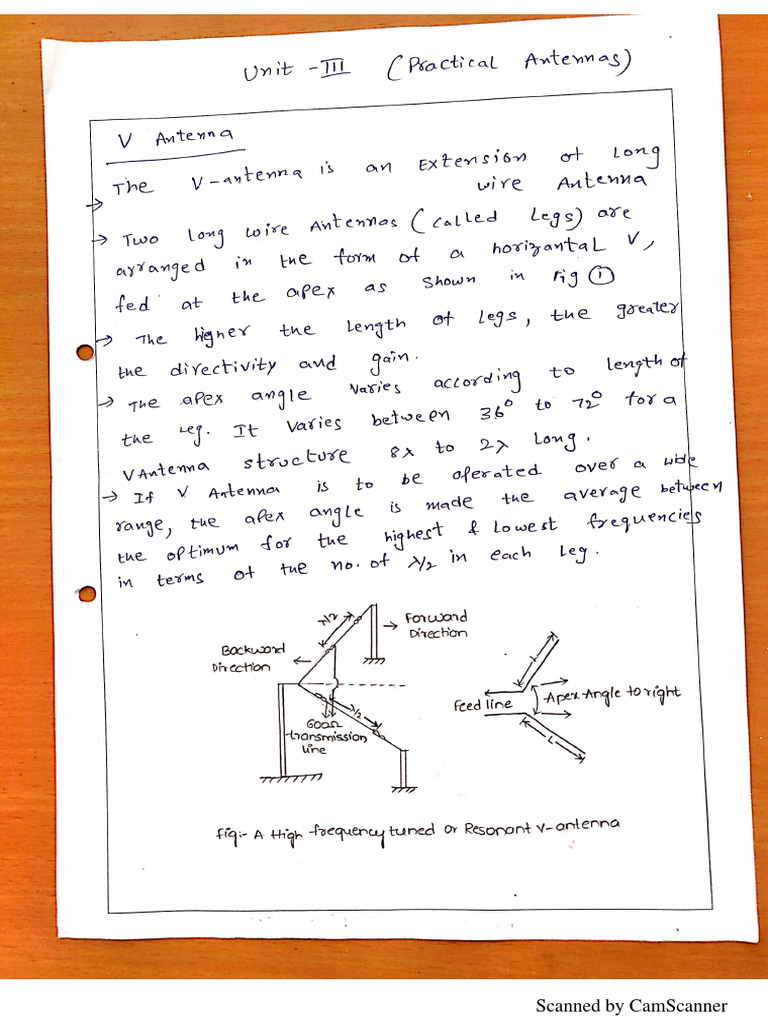 Unit - III (Practical Antennas)
V Antenna
→ The V-antenna is an Extension of Long
wire Antenna
→ Two long wire Antennas (called Legs) are
arranged in the form of a horizantal V,
fed at the apex as shown in Fig ①
→ The higher the length of legs, the greater
the directivity and gain.
→ The apex angle varies according to length of
the leg. It varies between 36° to 72° for a
V Antenna structure 8λ to 2λ long.
→ If V Antenna is to be operated over a wide
range, the apex angle is made the average between
the optimum for the highest & lowest frequencies
in terms of the no. of λ/2 in each leg.
λ/2
→ Forward
Direction
Backward
Direction
λ/2
600Ω
transmission
line
L
Feed line
Apex Angle to right
L
Fig:- A High frequency tuned or Resonant V-antenna
Scanned by CamScanner